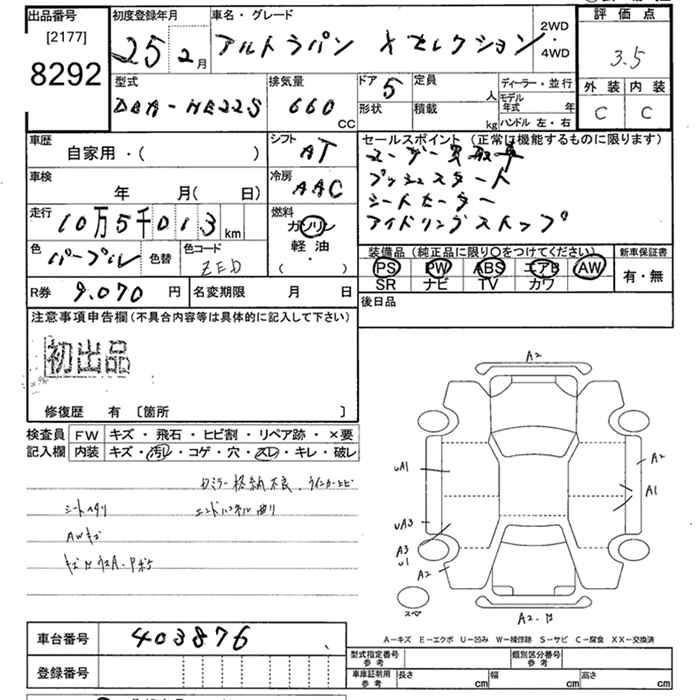 出品番号
[2177]
8292
初度登録年月
25 2月
車名・グレード
アルトラパン Xセレクション
2WD
・
4WD
評価点
3.5
外装 内装
C C
型式
DBA-HE22S
排気量
660
CC
ドア
5
定員
人
形状
積載
kg
ディーラー・並行
モデル
年式 年
ハンドル 左・右
車歴
自家用・( )
シフト
AT
セールスポイント (正常に機能するものに限ります)
プッシュスタート
シートヒーター
アイドリングストップ
車検
年 月( 日)
冷房
AAC
走行
10万5千013km
燃料
ガソリン
軽油
( ・ )
色
パープル
色替
色コード
ZED
装備品(純正品に限り○をつけてください)
PS PW ABS エアB AW
SR ナビ TV カワ
新車保証書
有・無
R券 9,070 円
名変期限 月 日
後日品
注意事項申告欄(不具合内容等は具体的に記入して下さい)
初出品
修復歴 有 〔箇所 〕
検査員
記入欄
FW キズ・飛石・ヒビ割・リペア跡・×要
内装 キズ・汚レ・コゲ・穴・スレ・キレ・破レ
ミラー格納不良、ウインカーヒビ
シートヘタリ
エンドパネル曲り
AWキズ
A2
uA1
uA3
A3
u1
A2
A2
A1
スペ
A2・B
A-キズ E-エクボ U-凹み W-補修跡 S-サビ C-腐食 XX-交換済
車台番号
403876
登録番号
型式指定番号
参考
類別区分番号
参考
車庫証明用
参考
長さ cm
幅 cm
高さ cm